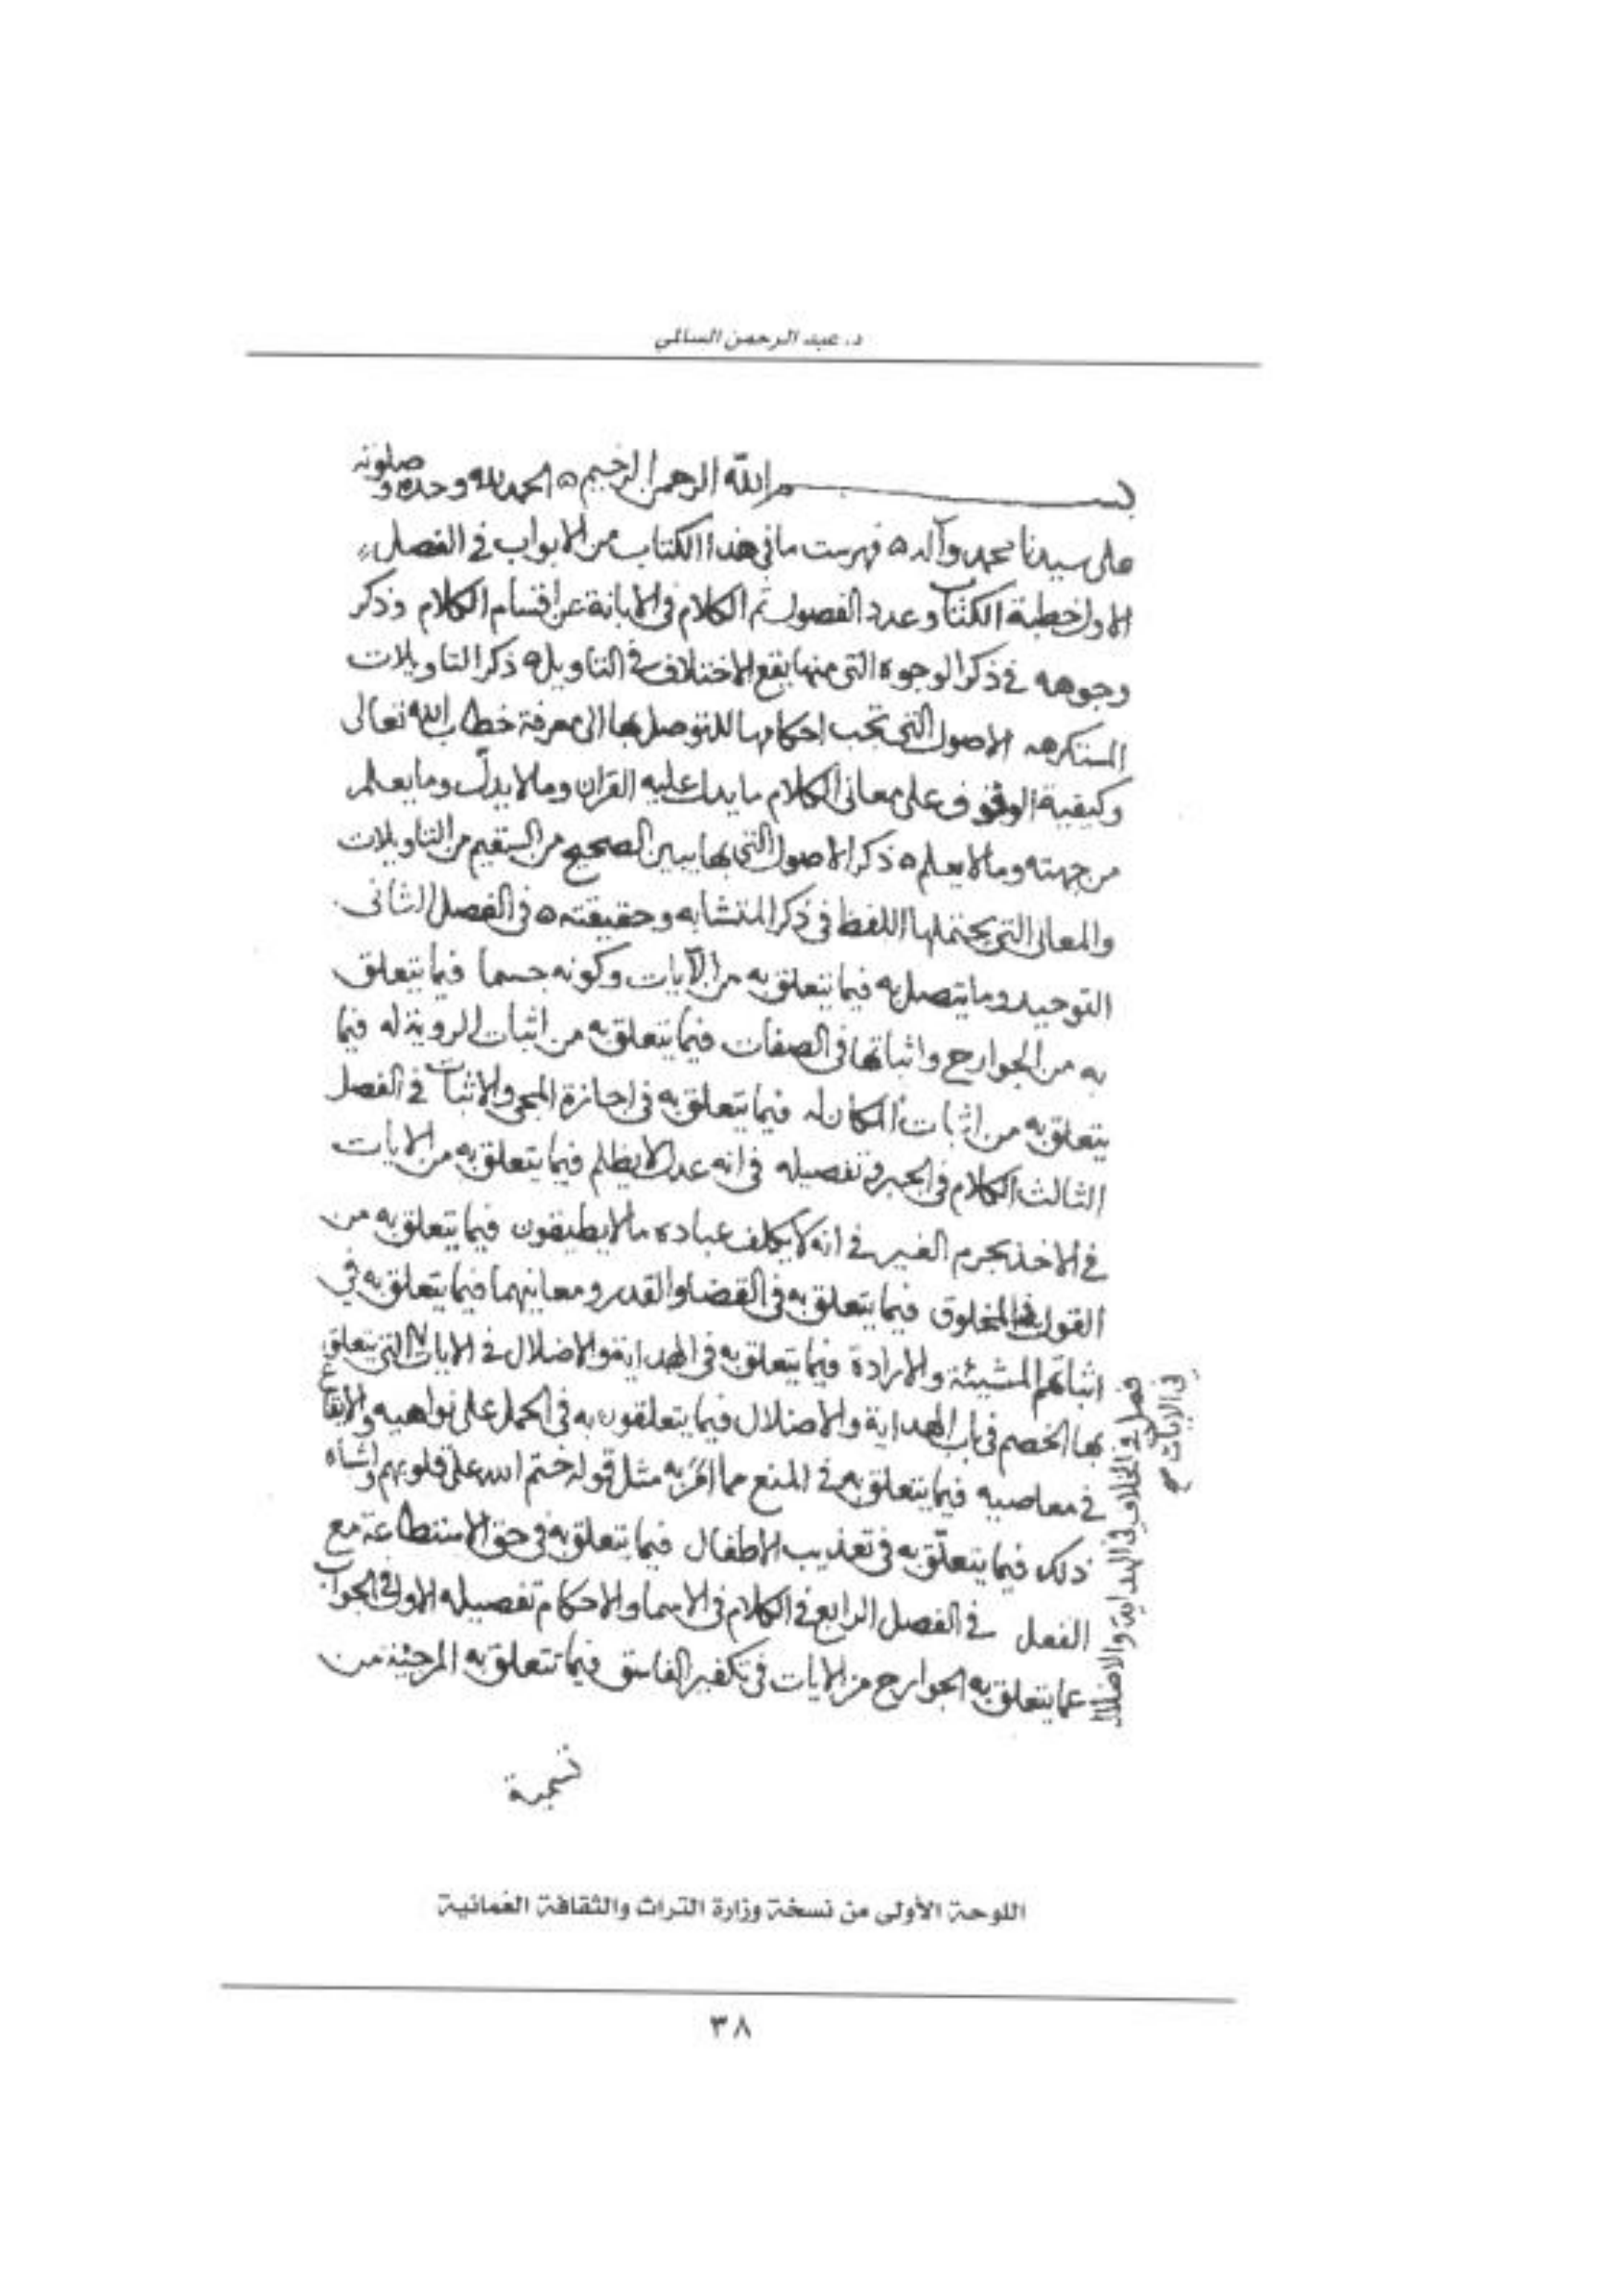 د. عبد الرحمن السالمي
بسم الله الرحمن الرحيم ه الحمد لله وحده وصلوته
على سيدنا محمد وآله ه فهرست ما في هذا الكتاب من الابواب في الفصل
الاول خطبة الكتاب وعدد الفصول ثم الكلام في الابانة عن اقسام الكلام وذكر
وجوهه في ذكر الوجوه التي منها يقع الاختلاف في التاويل ه ذكر التاويلات
المستكرهه الاصول التي تجب احكامها للتوصل بها الى معرفة خطاب الله تعالى
وكيفية الوقوف على معاني الكلام ما يدل عليه القران وما لا يدل وما يعلم
من جهته وما لا يعلم ه ذكر الاصول التي بها يبين الصحيح من السقيم من التاويلات
والمعاني التي يحتملها اللفظ في ذكر المتشابه وحقيقته ه في الفصل الثاني
التوحيد وما يتصل به فيما يتعلق به من الآيات وكونه جسما فيما يتعلق
به من الجوارح واثباتها في الصفات فيما يتعلق به من اثبات الروية له فيما
يتعلق به من اثبات المكان له فيما يتعلق به في اجازة المجي والاثبات في الفصل
الثالث الكلام في الجبر في تفصيله في انه عدل لا يظلم فيما يتعلق به من الايات
في الاخذ بجرم الغير في انه لا يكلف عباده ما لا يطيقون فيما يتعلق به من
القول في المخلوق فيما يتعلق به في القضا والقدر ومعانيهما فيما يتعلق به في
اثباتهم المشيئة والارادة فيما يتعلق به في الهداية والاضلال في الايات التي يتعلق
بها الخصم في باب الهداية والاضلال فيما يتعلقون به في الحمل على نواهيه والايقاع
في معاصيه فيما يتعلق به في المنع مما امر به مثل قوله ختم الله على قلوبهم واشباه
ذلك فيما يتعلق به في تعذيب الاطفال فيما يتعلق به في حق الاستطاعة مع
الفعل في الفصل الرابع في الكلام في الاسما والاحكام تفصيله الاول في الجواب
عما يتعلق به الخوارج من الايات في تكفير الفاسق فيما تتعلق به المرجئة من
فصل في الخلاف في الهداية والاضلال
في الايات
تسمية
اللوحة الأولى من نسخة وزارة التراث والثقافة العُمانية
٣٨